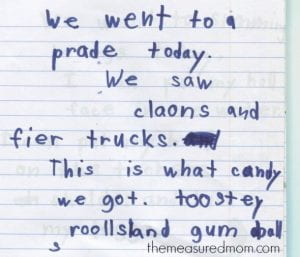 We went to a
prade today.
We saw
claons and
fier trucks.
This is what candy
we got. toostey
roolls and gum ball
s
themeasuredmom.com